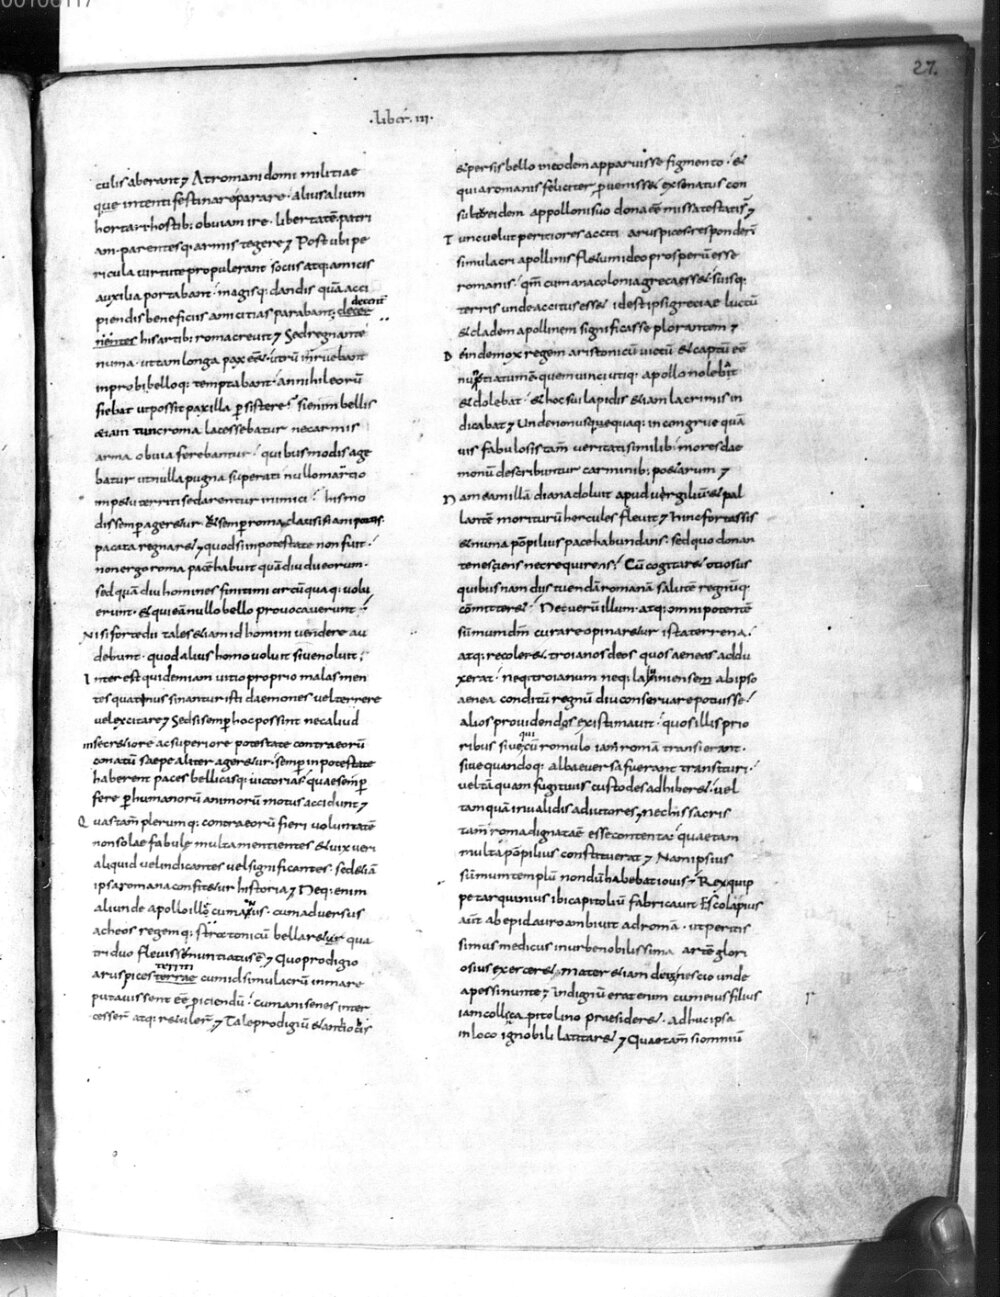 00106117
27.
·liber·III·
culis aberant; At romani domi militiae
que intenti festinare parare· alius alium
hortari hostib; obuiam ire· libertatē patri
am parentesq; armis tegere; Post ubi pe
ricula uirtute propulerant sociis atq; amicis
auxilia portabant· magisq; dandis quā acci
piendis beneficiis amicitias parabant; decen
ter his artib; roma creuit; Sed regnante
numa ut tam longa pax eēt utrū inruebant
inprobi belloq; temptabant· an nihil eorū
fiebat ut posset pax illa persistere? Si enim bellis
etiam tunc roma lacessebatur nec armis
arma obuia ferebantur· quibus modis age
batur ut nulla pugna superati nullo martio
impetu territi sedarentur inimici? his mo
dis semper ageretur· et semper roma clausis iani portis
pacata regnaret; quod si in potestate non fuit·
non ergo roma pacē habuit quādiu deorum·
sed quādiu homines finitimi circūquaq; uolu
erunt· qui eā nullo bello prouocauerunt·
Nisi forte dii tales etiam id homini uendere au
debunt· quod alius homo uoluit siue noluit;
Interest quidem iam uitio proprio malas men
tes quatinus sinantur isti daemones uel terrere
uel excitare; Sed si semper hoc possint nec aliud
insecretiore ac superiore potestate contra eorū
conatū saepe aliter ageretur· semper in potestate
haberent paces bellicasq; uictorias· quae semper
fere per humanorū animorū motus accidunt;
Quas tam̄ plerumq; contra eorū fieri uoluntatē
non solae fabulę multa mentientes et uix ueri
aliquid uel indicantes uel significantes· sed etiā
ipsa romana confitetur historia; Neq; enim
aliunde apollo ille cumanus· cum aduersus
acheos regemq; aristonicū bellaretur qua
triduo fleuisse nuntiatus ē; Quo prodigio
aruspices territi cum id simulacrū in mare
putauissent eē proiciendū· cumani senes inter
cesserunt atq; retulerunt; Tale prodigiū et antiochi
et persis bello in eodem apparuisse figmento· et
quia romanis feliciter prouenisset ex senatus con
sulto eidem apolloni suo dona eē missa testati s̄;
Tunc uelut peritiores acciti aruspices responderunt
simulacri apollinis fletum ideo prosperū esse
romanis· qm̄ cumana colonia graeca esset· suisq;
terris unde accitus esset id est ipsi greciae luctū
et cladem apollinem significasse plorantem;
Deinde mox regem aristonicū uictū et captū eē
nuntiatum ē quem uinci utiq; apollo nolebat
et dolebat· et hoc sui lapidis etiam lacrimis in
dicabat; Unde non usquequaq; incongrue quā
uis fabulosis tam̄ ueritati similib; mores dae
monū describuntur carminib; poetarum;
Nam camillā diana doluit apud uergiliū et pal
lantē moriturū hercules fleuit; Hinc fortassis
et numa pōpilius pace habundans· sed quo donan
te nesciens nec requirens· Cū cogitaret otiosus
quibusnam diis tuendā romanā salutē regnūq;
cōmitteret· Nec uerū illum atq; omnipotentē
sūmum dm̄ curare opinaretur ista terrena·
atq; recoleret troianos deos quos aeneas addu
xerat· neq; troianum neq; lauiniensem ab ipso
aenea conditū regnū diu conseruare potuisse·
alios prouidendos existimauit· quos illis prio
ribus siue qui cū romulo iam romā transierant·
siue quandoq; alba euersa fuerant transituri·
uel tāquam fugitiuis custodes adhiberet· uel
tamquā inualidis adiutores; nec his sacris
tam̄ roma dignata ē esse contenta· quae tam
multa pōpilius constituerat; Nam ipsius
sūmum templū nondū habebat iouis; Rex quip
pe tarquinius ibi capitoliū fabricauit Escolapius
aut̄ ab epidauro ambiuit ad romā· ut peritis
simus medicus in urbe nobilissima artē glori
osius exerceret; mater etiam deū nescio unde
a pessinunte; Indignū erat enim cum eius filius
iam colli capitolino praesideret· adhuc ipsa
in loco ignobili latitaret; Quae tam̄ si omniū